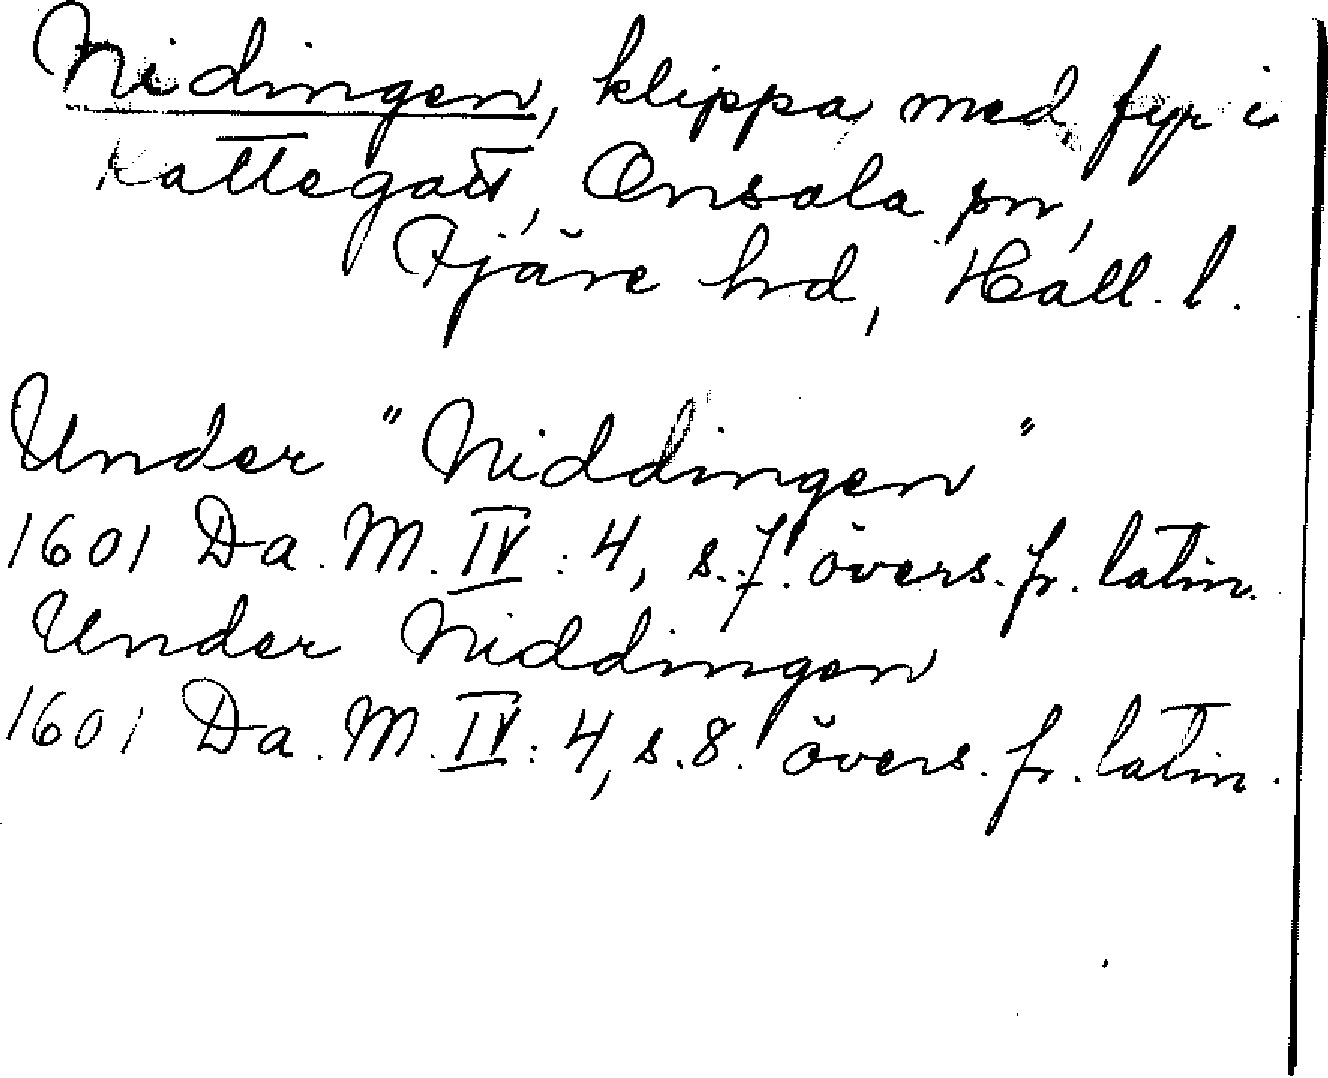 Nidingen, klippa med fyr i
Kattegatt, Onsala sn,
Fjäre hrd, Hall. l.
Under "Niddingen"
1601 Da. M. IV: 4, s. 7. övers. fr. latin.
Under Niddingen
1601 Da. M. IV: 4, s. 8. övers. fr. latin.